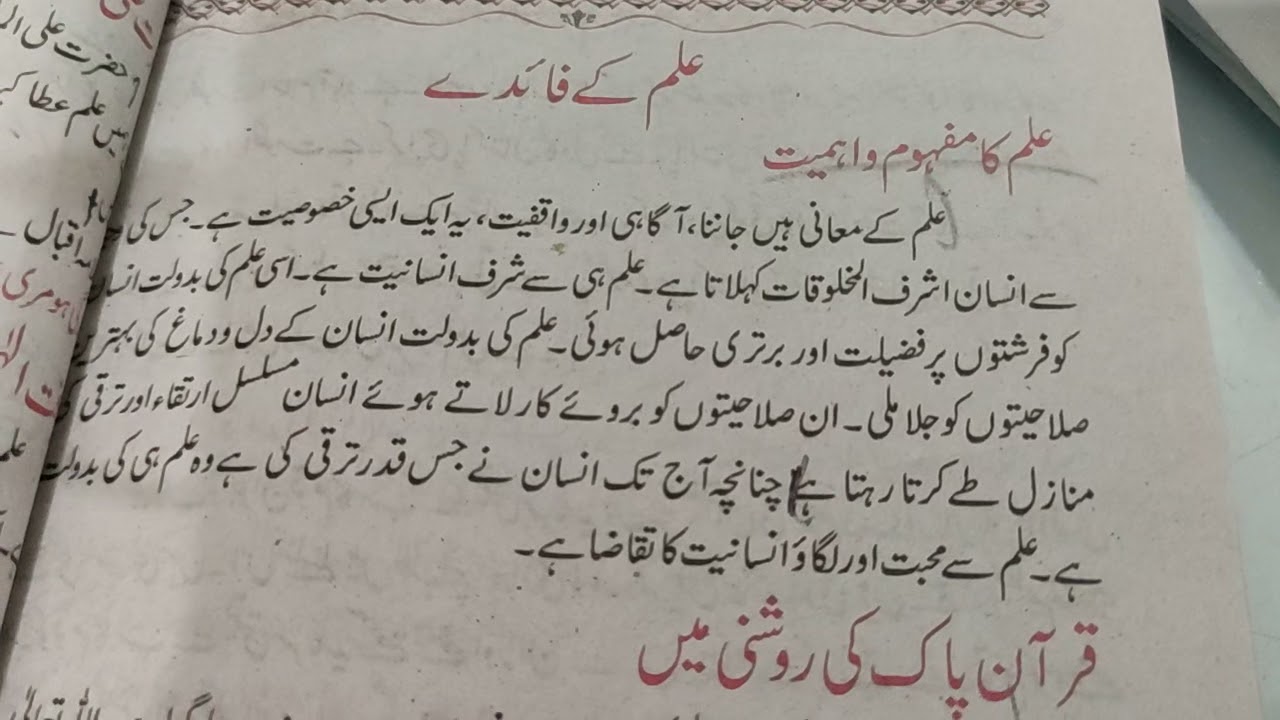 علم کے فائدے
علم کا مفہوم و اہمیت
علم کے معانی ہیں جاننا، آگاہی اور واقفیت، یہ ایک ایسی خصوصیت ہے۔ جس کی
سے انسان اشرف المخلوقات کہلاتا ہے۔ علم ہی سے شرف انسانیت ہے۔ اسی علم کی بدولت انسان
کو فرشتوں پر فضیلت اور برتری حاصل ہوئی۔ علم کی بدولت انسان کے دل و دماغ کی بہترین
صلاحیتوں کو جلا ملی۔ ان صلاحیتوں کو بروئے کار لاتے ہوئے انسان مسلسل ارتقاء اور ترقی کی
منازل طے کرتا رہتا ہے چنانچہ آج تک انسان نے جس قدر ترقی کی ہے وہ علم ہی کی بدولت
ہے۔ علم سے محبت اور لگاؤ انسانیت کا تقاضا ہے۔
قرآن پاک کی روشنی میں
اللہ تعالیٰ
حضرت علی
میں علم عطا
اقبال